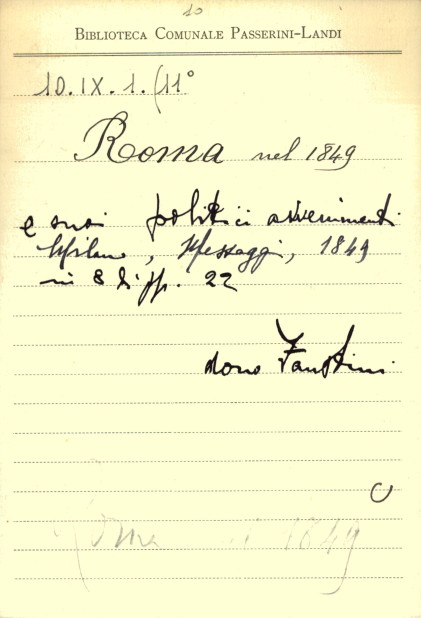 10
BIBLIOTECA COMUNALE PASSERINI-LANDI
10.IX.1.(11°
Roma nel 1849
e suoi politici avvenimenti
Milano, Messaggi, 1849
in 8 di pp. 22
dono Faustini
C
Roma 1849